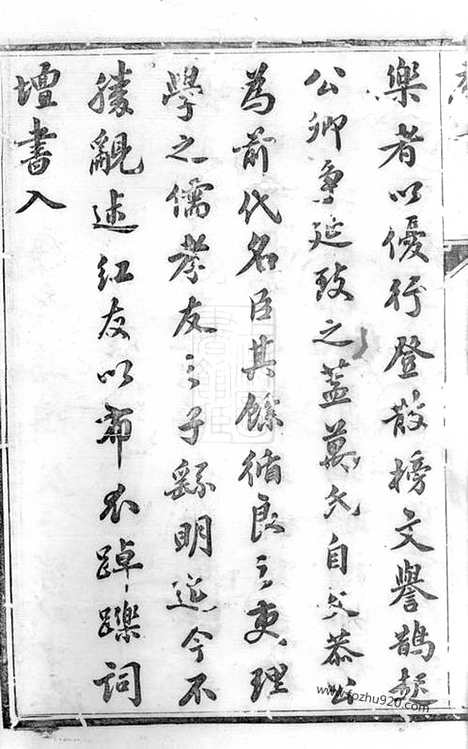 樂者以優行登散榜文譽鵲起
公卿爭延致之蓋萬氏自文恭公
為前代名臣其餘循良之吏理
學之儒孝友之子繇明迄今不
勝覼述紅友以布衣踔躒詞
壇書入
www.fozhu920.com